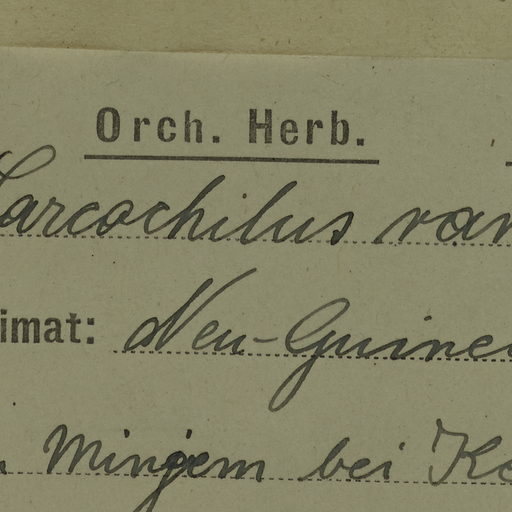 Orch. Herb.
Sarcochilus
imat: Neu-Guinea
Minjem bei